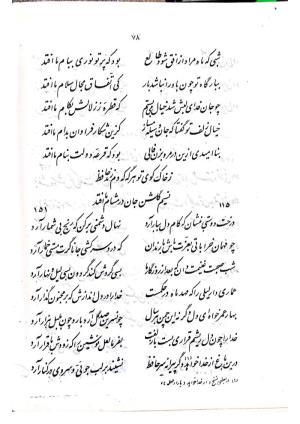 ۷۸
شبی که ماه مراد از افق شود طالع بود که پرتو نوری ببام ما افتد
ببارگاه تو چون باد را نباشد بار کی اتفاق مجال سلام ما افتد
چو جان فدای لبش شد خیال می‌بستم که قطره‌ای ز زلالش بکام ما افتد
خیال زلف تو گفتا که جان وسیله مساز کزین شکار فراوان بدام ما افتد
بناامیدی ازین در مرو بزن فالی بود که قرعهٔ دولت بنام ما افتد
ز خاک کوی تو هر گه که دم زند حافظ
نسیم گلشن جان در مشام ما افتد
۱۱۵ ۱۵۱
درخت دوستی بنشان که کام دل ببار آرد نهال دشمنی برکن که رنج بی‌شمار آرد
چو مهمان خراباتی بعزت باش با رندان که درد سر کشی جانا گرت مستی خمار آرد
شب صحبت غنیمت دان که بعد از روزگار ما بسی گردش کند گردون بسی لیل و نهار آرد
عماری دار لیلی را که مهد ماه در حکمست خدا را در دل اندازش که بر مجنون گذار آرد
بهار عمر خواه ای دل وگرنه این چمن هر سال چو نسرین صد گل آرد بار و چون بلبل هزار آرد
خدا را چون دل ریشم قراری بست با زلفت بفرما لعل نوشین را که زودش باقرار آرد
درین باغ از خدا خواهد دگر پیرانه سر حافظ نشیند بر لب جویی و سروی در کنار آرد